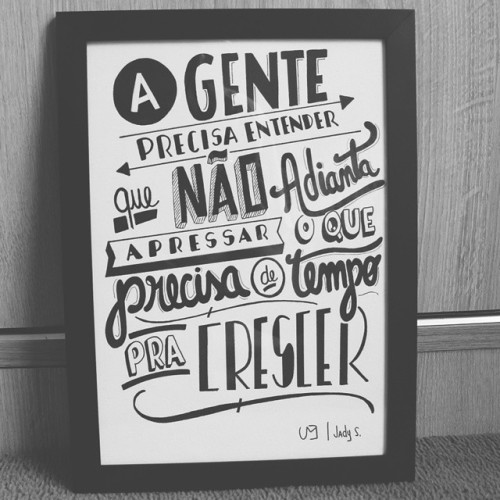 A GENTE
PRECISA ENTENDER
que NÃO Adianta
APRESSAR O QUE
precisa de tempo
PRA CRESCER
Jady S.